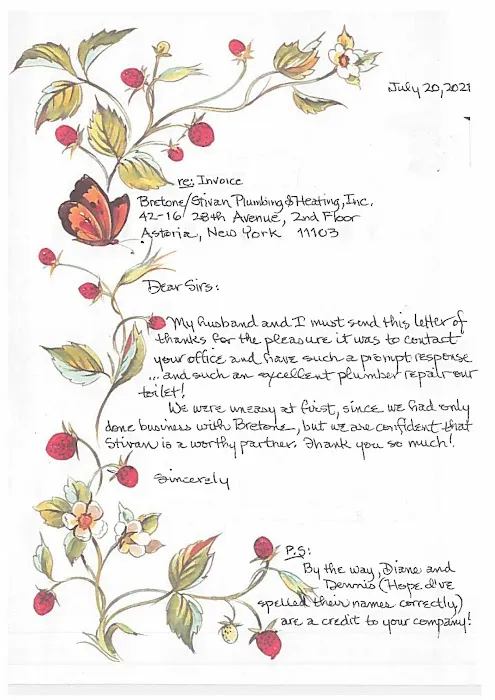 July 20, 2021
re: Invoice
Bretone/Stivan Plumbing & Heating, Inc.
42-16 28th Avenue, 2nd Floor
Astoria, New York 11103
Dear Sirs:
My husband and I must send this letter of
thanks for the pleasure it was to contact
your office and have such a prompt response
... and such an excellent plumber repair our
toilet!
We were uneasy at first, since we had only
done business with Bretone, but we are confident that
Stivan is a worthy partner. Thank you so much!
Sincerely
P.S:
By the way, Diane and
Dennis (Hope I've
spelled their names correctly)
are a credit to your company!